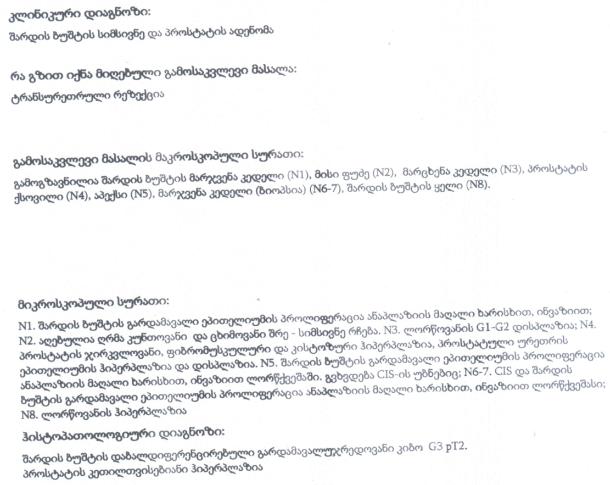 კლინიკური დიაგნოზი:
შარდის ბუშტის სიმსივნე და პროსტატის ადენომა
რა გზით იქნა მიღებული გამოსაკვლევი მასალა:
ტრანსურეთრული რეზექცია
გამოსაკვლევი მასალის მაკროსკოპული სურათი:
გამოგზავნილია შარდის ბუშტის მარჯვენა კედელი (N1), მისი ფუძე (N2), მარცხენა კედელი (N3), პროსტატის
ქსოვილი (N4), აპექსი (N5), მარჯვენა კედელი (ბიოპსია) (N6-7), შარდის ბუშტის ყელი (N8).
მიკროსკოპული სურათი:
N1. შარდის ბუშტის გარდამავალი ეპითელიუმის პროლიფერაცია ანაპლაზიის მაღალი ხარისხით, ინვაზიით;
N2. აღებულია ღრმა კუნთოვანი და ცხიმოვანი შრე - სიმსივნე რჩება. N3. ლორწოვანის G1-G2 დისპლაზია; N4.
პროსტატის ჯირკვლოვანი, ფიბრომუსკულური და კისტოზური ჰიპერპლაზია, პროსტატული ურეთრის
ეპითელიუმის ჰიპერპლაზია და დისპლაზია. N5. შარდის ბუშტის გარდამავალი ეპითელიუმის პროლიფერაცია
ანაპლაზიის მაღალი ხარისხით, ინვაზიით ლორწქვეშაში. გვხვდება CIS-ის უბნებიც; N6-7. CIS და შარდის
ბუშტის გარდამავალი ეპითელიუმის პროლიფერაცია ანაპლაზიის მაღალი ხარისხით, ინვაზიით ლორწქვეშასი;
N8. ლორწოვანის ჰიპერპლაზია
ჰისტოპათოლოგიური დიაგნოზი:
შარდის ბუშტის დაბალდიფერენცირებული გარდამავალუჯრედოვანი კიბო G3 pT2.
პროსტატის კეთილთვისებიანი ჰიპერპლაზია